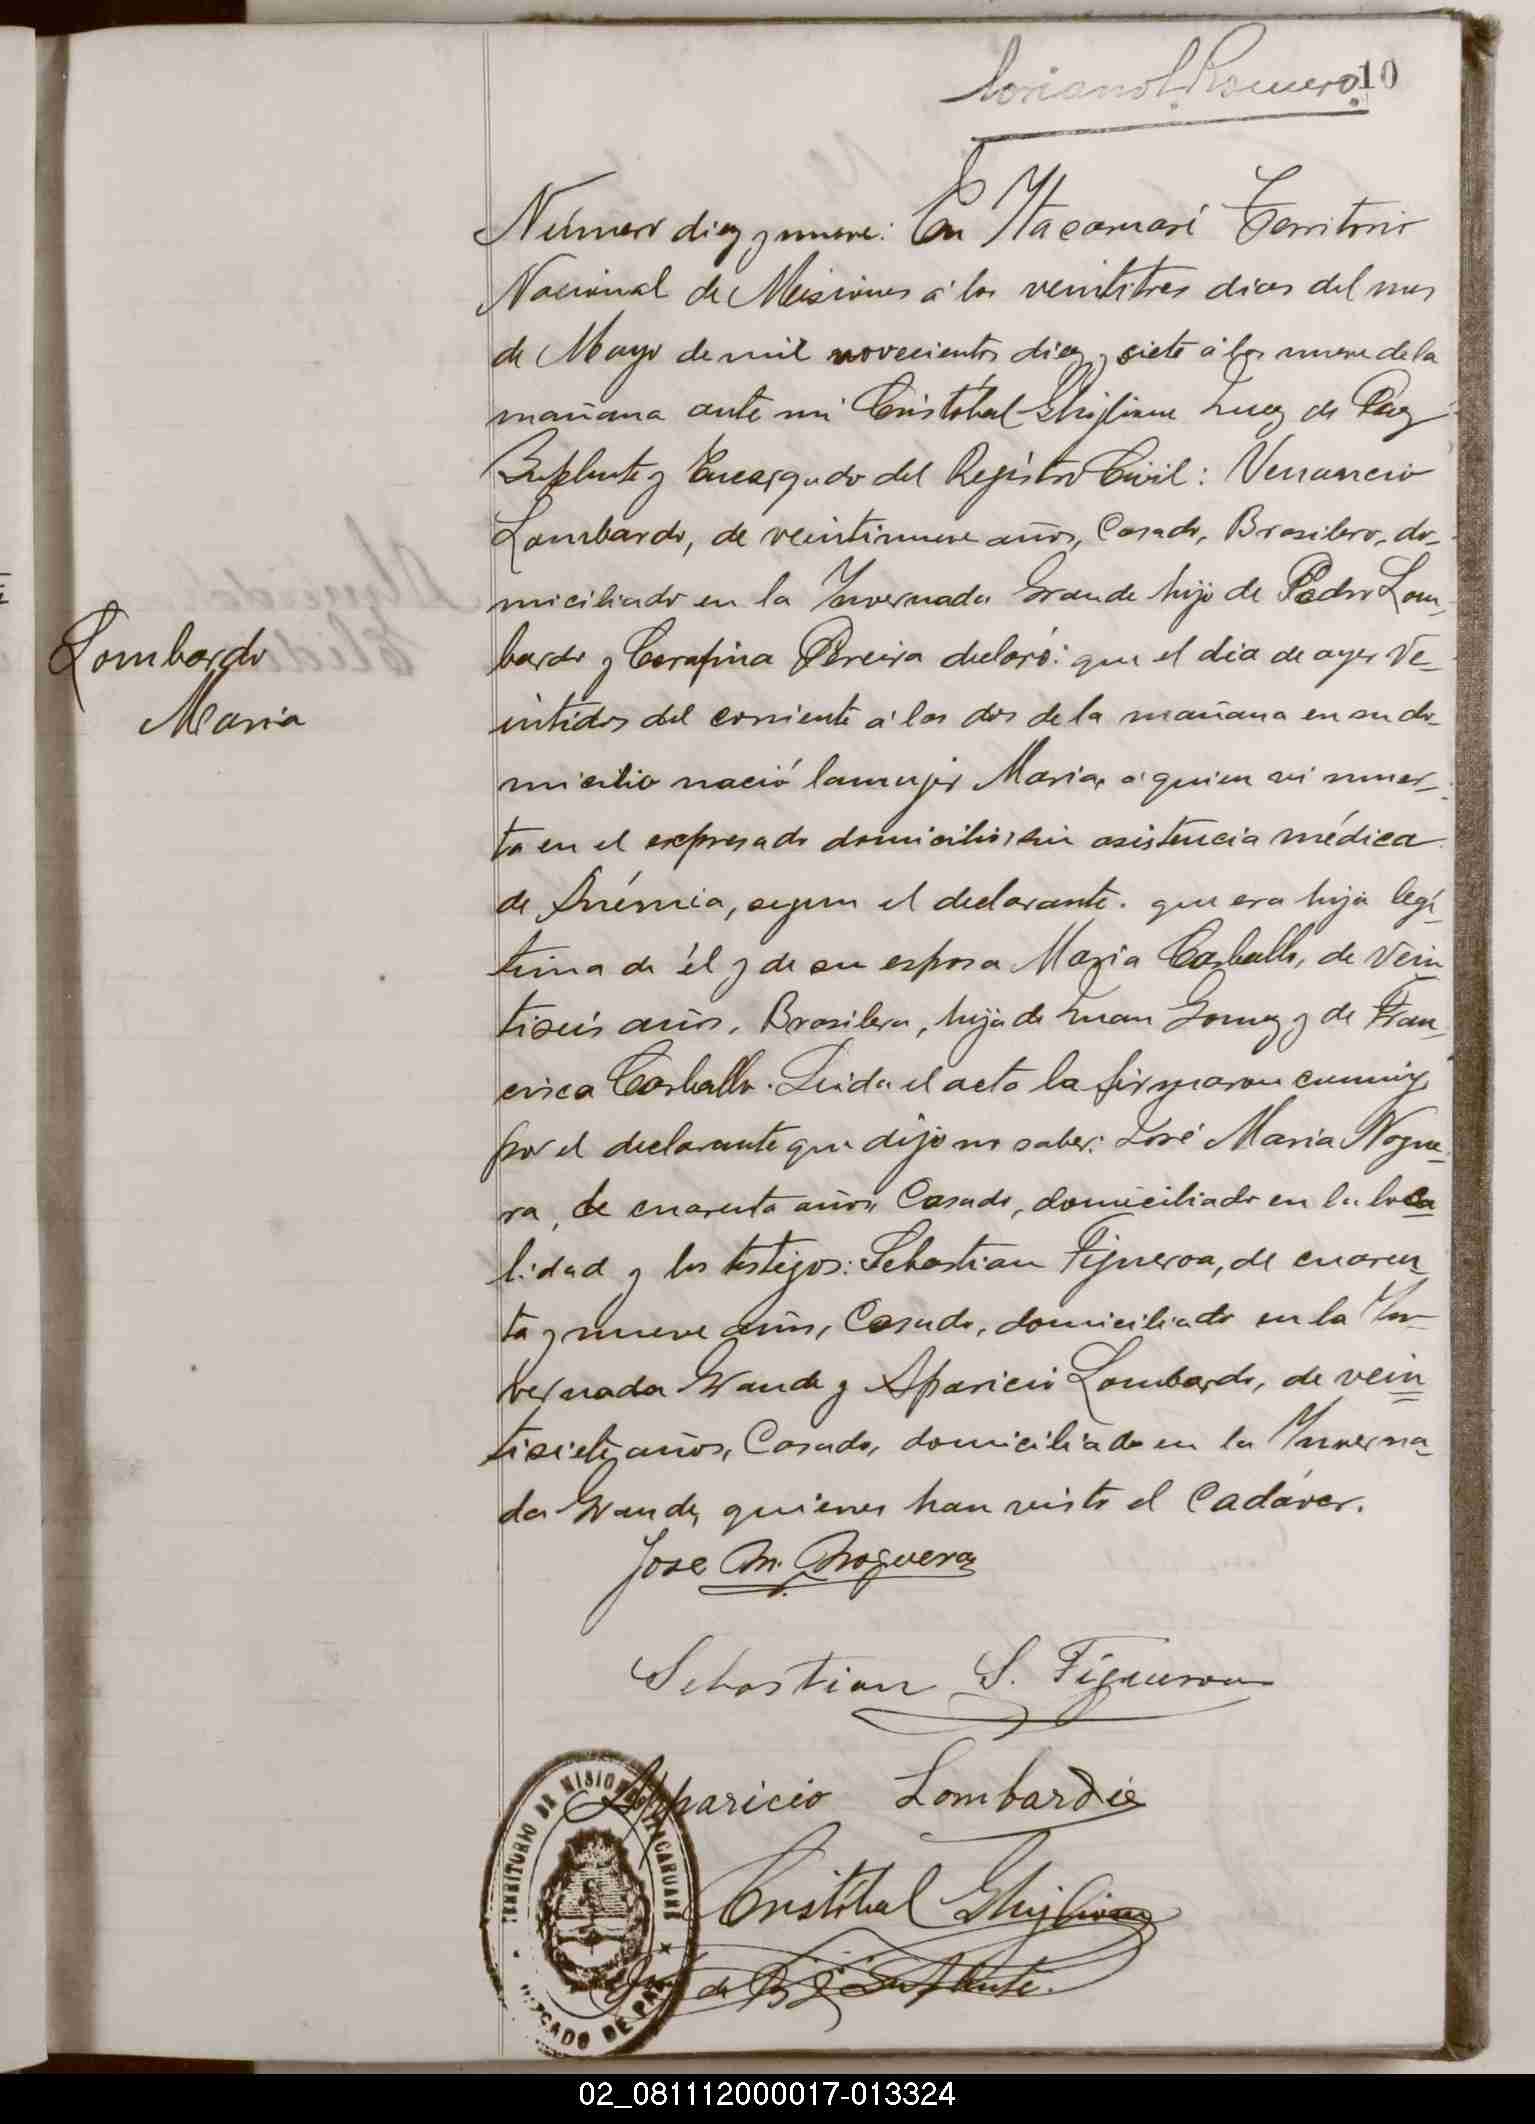 Soriano L. Romero. 10
Número diez y nueve: En Itacaruaré Territorio
Nacional de Misiones á los veintitres dias del mes
de Mayo de mil novecientos diez y siete á las nueve de la
mañana ante mi Cristóbal Ghiglione Juez de Paz
Suplente y Encargado del Registro Civil: Venancio
Lombardo, de veintinueve años, Casado, Brasilero, do-
miciliado en la Invernada Grande hijo de Pedro Lom-
bardo y Cerafina Pereira declaró: que el dia de ayer Ve-
intidos del corriente á las dos de la mañana en su do-
micilio nació la mujer Maria, á quien vi muer-
ta en el expresado domicilio, sin asistencia médica
de Anémia, segun el declarante. que era hija legí-
tima de él y de su esposa Maria Carballo, de Vein-
tiseis años, Brasilera, hija de Juan Gomez y de Fran-
cisca Carballo. Leida el acta la firmaron conmigo
por el declarante que dijo no saber: José Maria Nogue-
ra, de cuarenta años, Casado, domiciliado en la loca-
lidad y los testigos: Sebastian Figueroa, de cuaren-
ta y nueve años, Casado, domiciliado en la In-
vernada Grande y Aparicio Lombardo, de vein-
tisiete años, Casado, domiciliado en la Inverna-
da Grande, quienes han visto el Cadáver.
Lombardo
Maria
Jose M. Noguera
Sebastian S. Figueroa
Apparicio Lombardie
Cristóbal Ghiglione
Juez de Paz Suplente.
TERRITORIO DE MISIONES ITACARUARE
JUZGADO DE PAZ
02_081112000017-013324